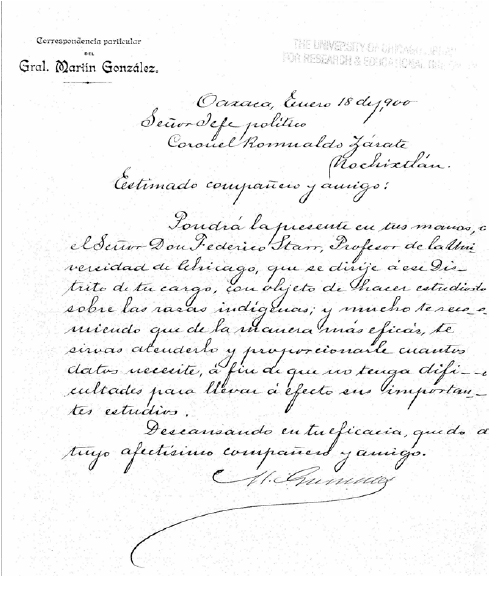 Correspondencia particular
DEL
Gral. Martín González.
THE UNIVERSITY OF CHICAGO
FOR RESEARCH & EDUCATIONAL
Oaxaca, Enero 18 de 1,900
Señor Jefe político
Coronel Romualdo Zárate
Nochixtlán.
Estimado compañero y amigo:
Pondrá la presente en tus manos,
el Señor Don Federico Starr, Profesor de la Uni
versidad de Chicago, que se dirije á ese Dis-
trito de tu cargo, con objeto de hacer estudios
sobre las razas indígenas; y mucho te reco-
miendo que de la manera más eficáz, te
sirvas atenderlo y proporcionarle cuantos
datos necesite, á fin de que no tenga difi-
cultades para llevar á efecto sus importan-
tes estudios.
Descansando en tu eficacia, quedo
tuyo afectísimo compañero y amigo.